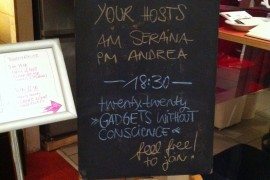 YOUR HOSTS
AM SERAINA
PM ANDREA
18:30
twenty-twenty
GADGETS WITHOUT
CONSCIENCE
feel free!
to join!